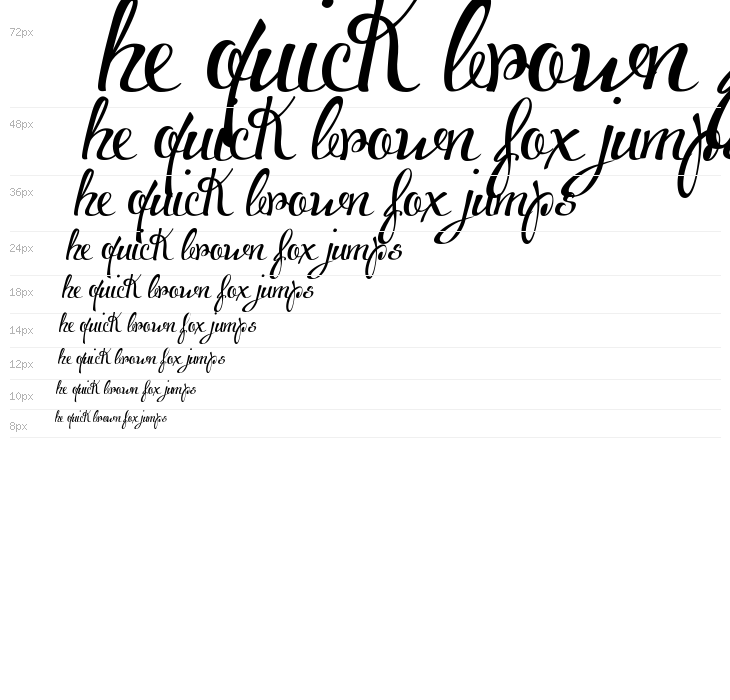 72px he quick brown
48px he quick brown fox jumps
36px he quick brown fox jumps
24px he quick brown fox jumps
18px he quick brown fox jumps
14px he quick brown fox jumps
12px he quick brown fox jumps
10px he quick brown fox jumps
8px he quick brown fox jumps